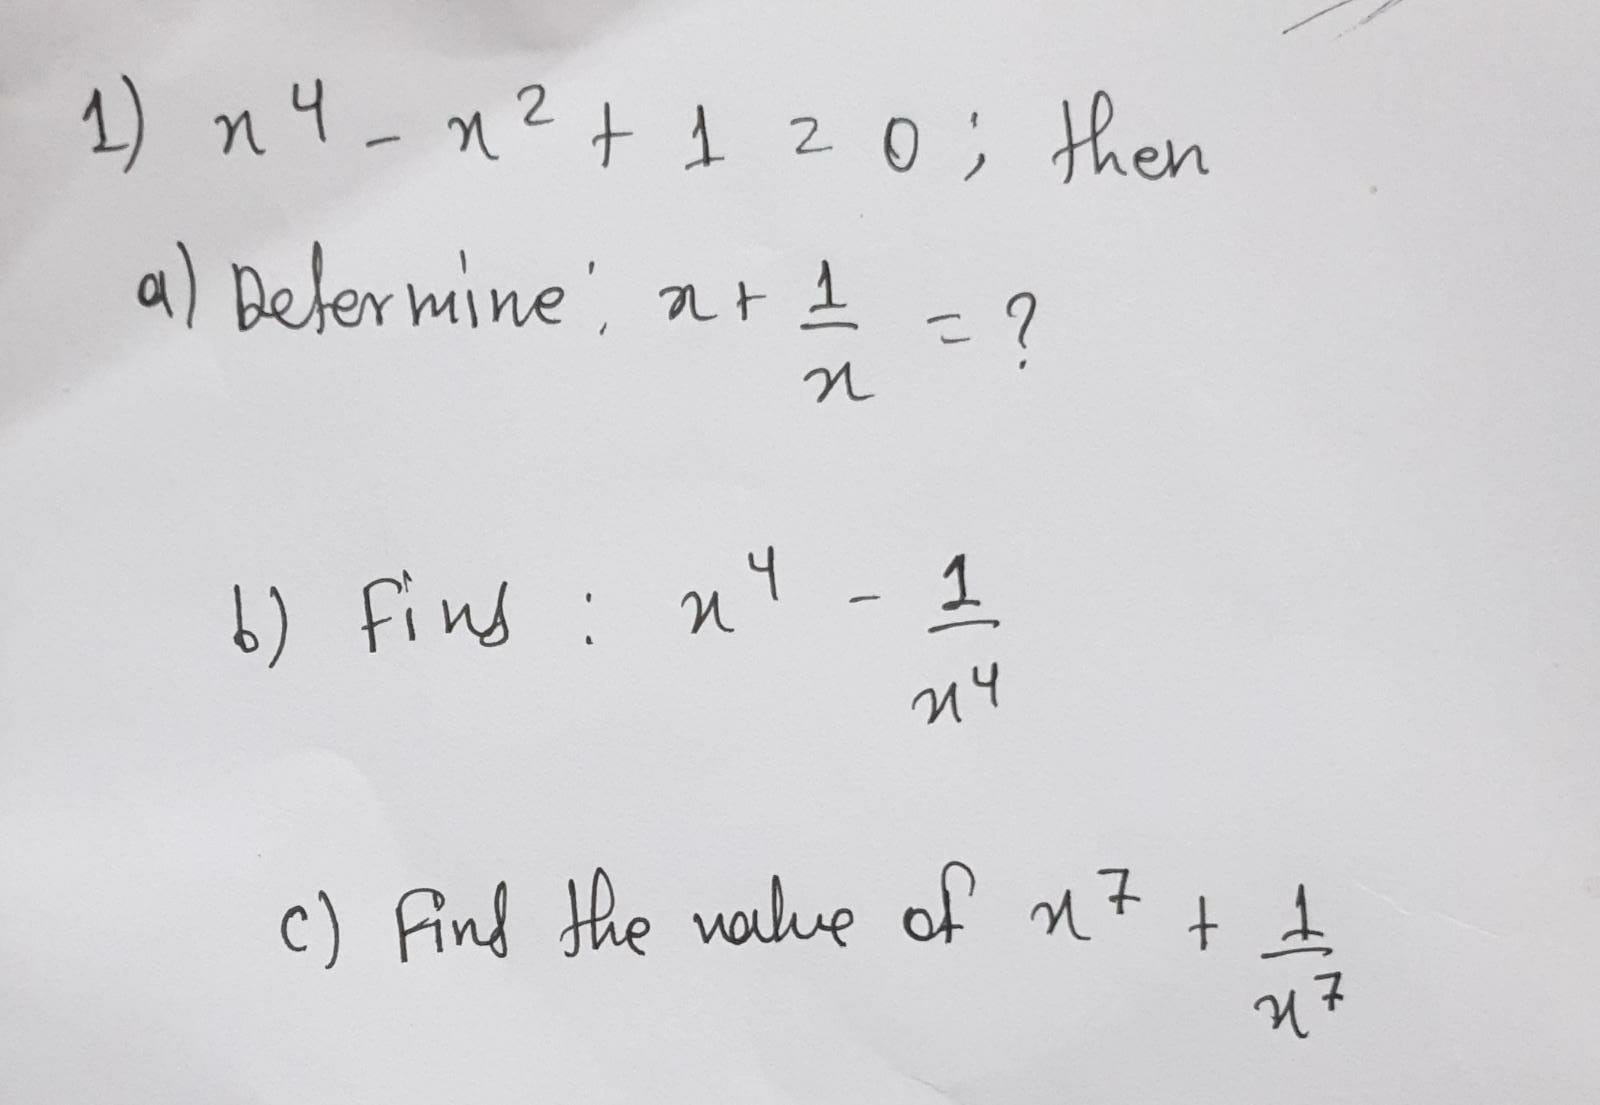 1) x⁴ - x² + 1 = 0 ; then
a) Determine: x + 1/x = ?
b) Find : x⁴ - 1/x⁴
c) Find the value of x⁷ + 1/x⁷